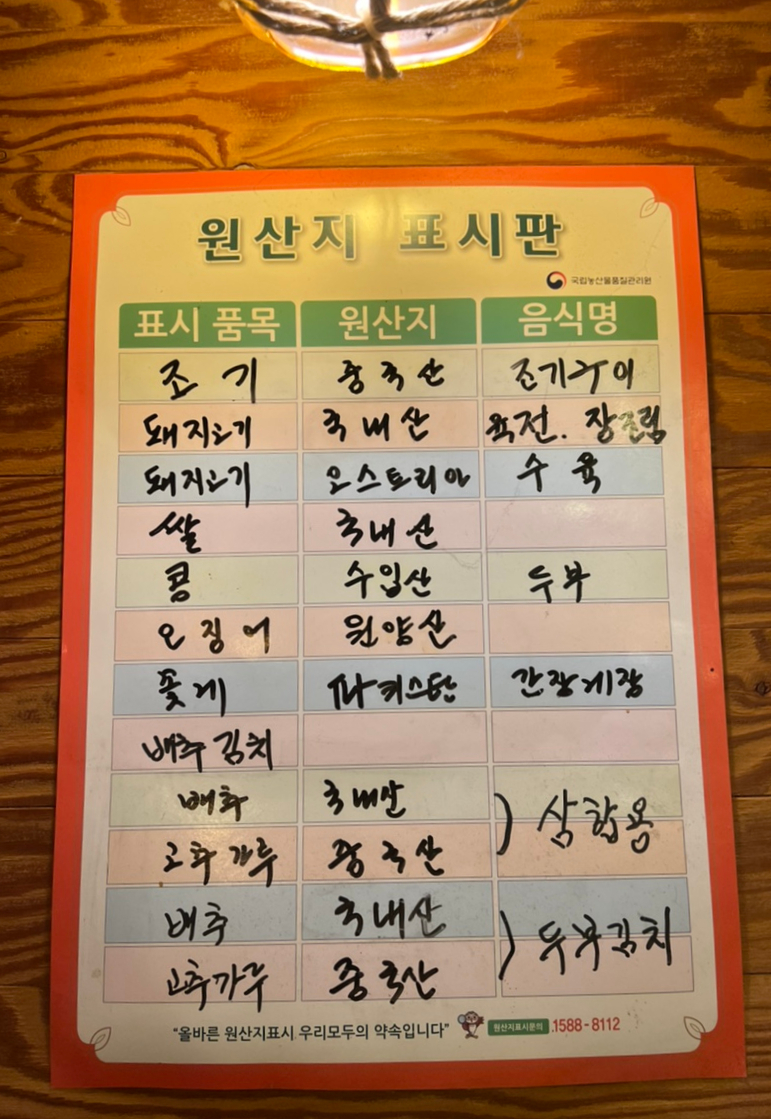 원산지 표시판
국립농산물품질관리원
표시 품목 원산지 음식명
조기 중국산 조기구이
돼지고기 국내산 육전. 장조림
돼지고기 오스트리아 수육
쌀 국내산
콩 수입산 두부
오징어 원양산
꽃게 파키스탄 간장게장
배추김치
배추 국내산
) 삼합용
고추가루 중국산
배추 국내산
) 두부김치
고추가루 중국산
"올바른 원산지표시 우리모두의 약속입니다" 원산지표시문의 1588-8112